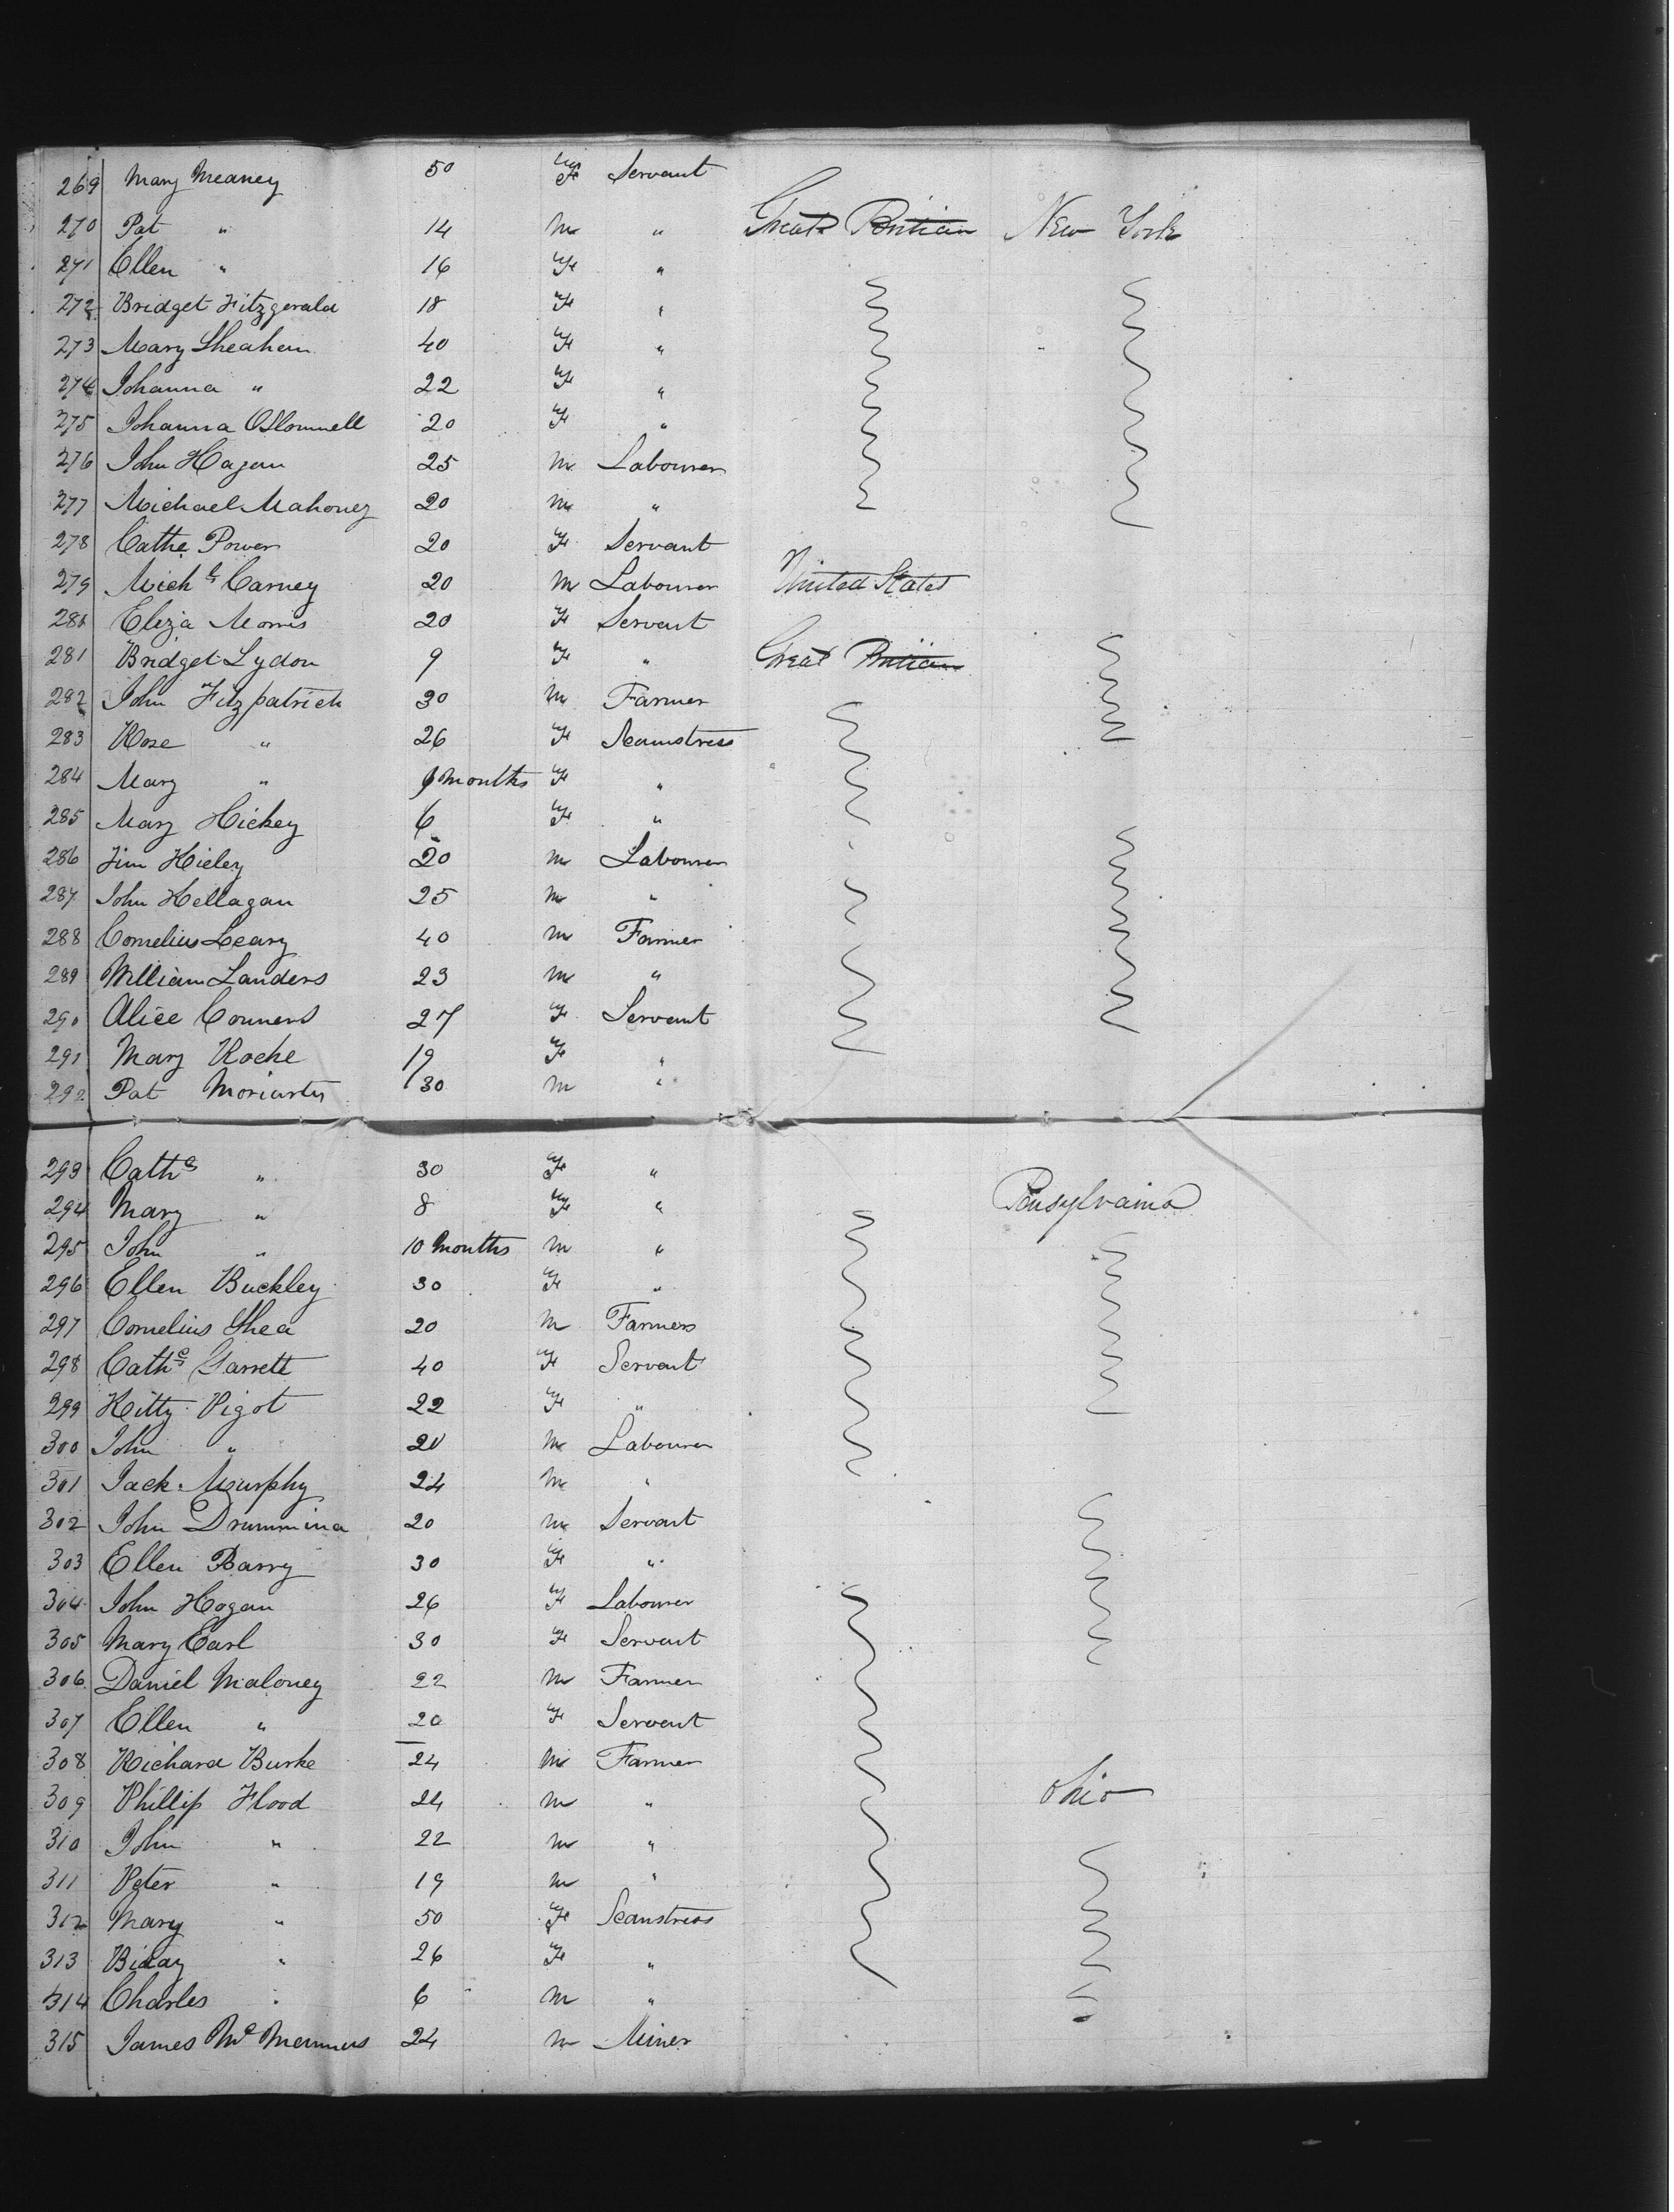 269 Mary Meaney 50 F Servant
270 Pat " 14 M " Great Britian New York
271 Ellen " 16 F "
272 Bridget Fitzgerald 18 F "
273 Mary Sheahan 40 F "
274 Johanna " 22 F "
275 Johanna 20 F "
276 John Hagan 25 M Labourer
277 Michael Mahoney 20 M "
278 Cathe Power 20 F Servant
279 Michl Carney 20 M Labourer United States
280 Eliza Morris 20 F Servant
281 Bridget Lydon 9 F " Great Britian
282 John Fitzpatrick 30 M Farmer
283 Rose " 26 F Seamstress
284 Mary " 9 months F "
285 Mary Hickey 6 F "
286 Jim Kieley 20 M Labourer
287 John Hellagan 25 M "
288 Cornelius Leary 40 M Farmer
289 William Landers 23 M "
290 Alice Conners 27 F Servant
291 Mary Roche 19 F "
292 Pat Moriarty 30 M "
293 Cathe " 30 F "
294 Mary " 8 F " Pensylvaina
295 John " 10 Months M "
296 Ellen Buckley 30 F "
297 Cornelius Shea 20 M Farmers
298 Cathe Garrett 40 F Servant
299 Kitty Pigot 22 F "
300 John " 20 M Labourer
301 Jack Murphy 24 M "
302 John 20 M Servant
303 Ellen Barry 30 F "
304 John Hogan 26 F Labourer
305 Mary Earl 30 F Servant
306 Daniel Maloney 22 M Farmer
307 Ellen " 20 F Servant
308 Richard Burke 24 M Farmer
309 Phillip Flood 24 M " Ohio
310 John " 22 M "
311 Peter " 19 M "
312 Mary " 50 F Seamstress
313 Biday " 26 F "
314 Charles " 6 M "
315 James 24 M Miner